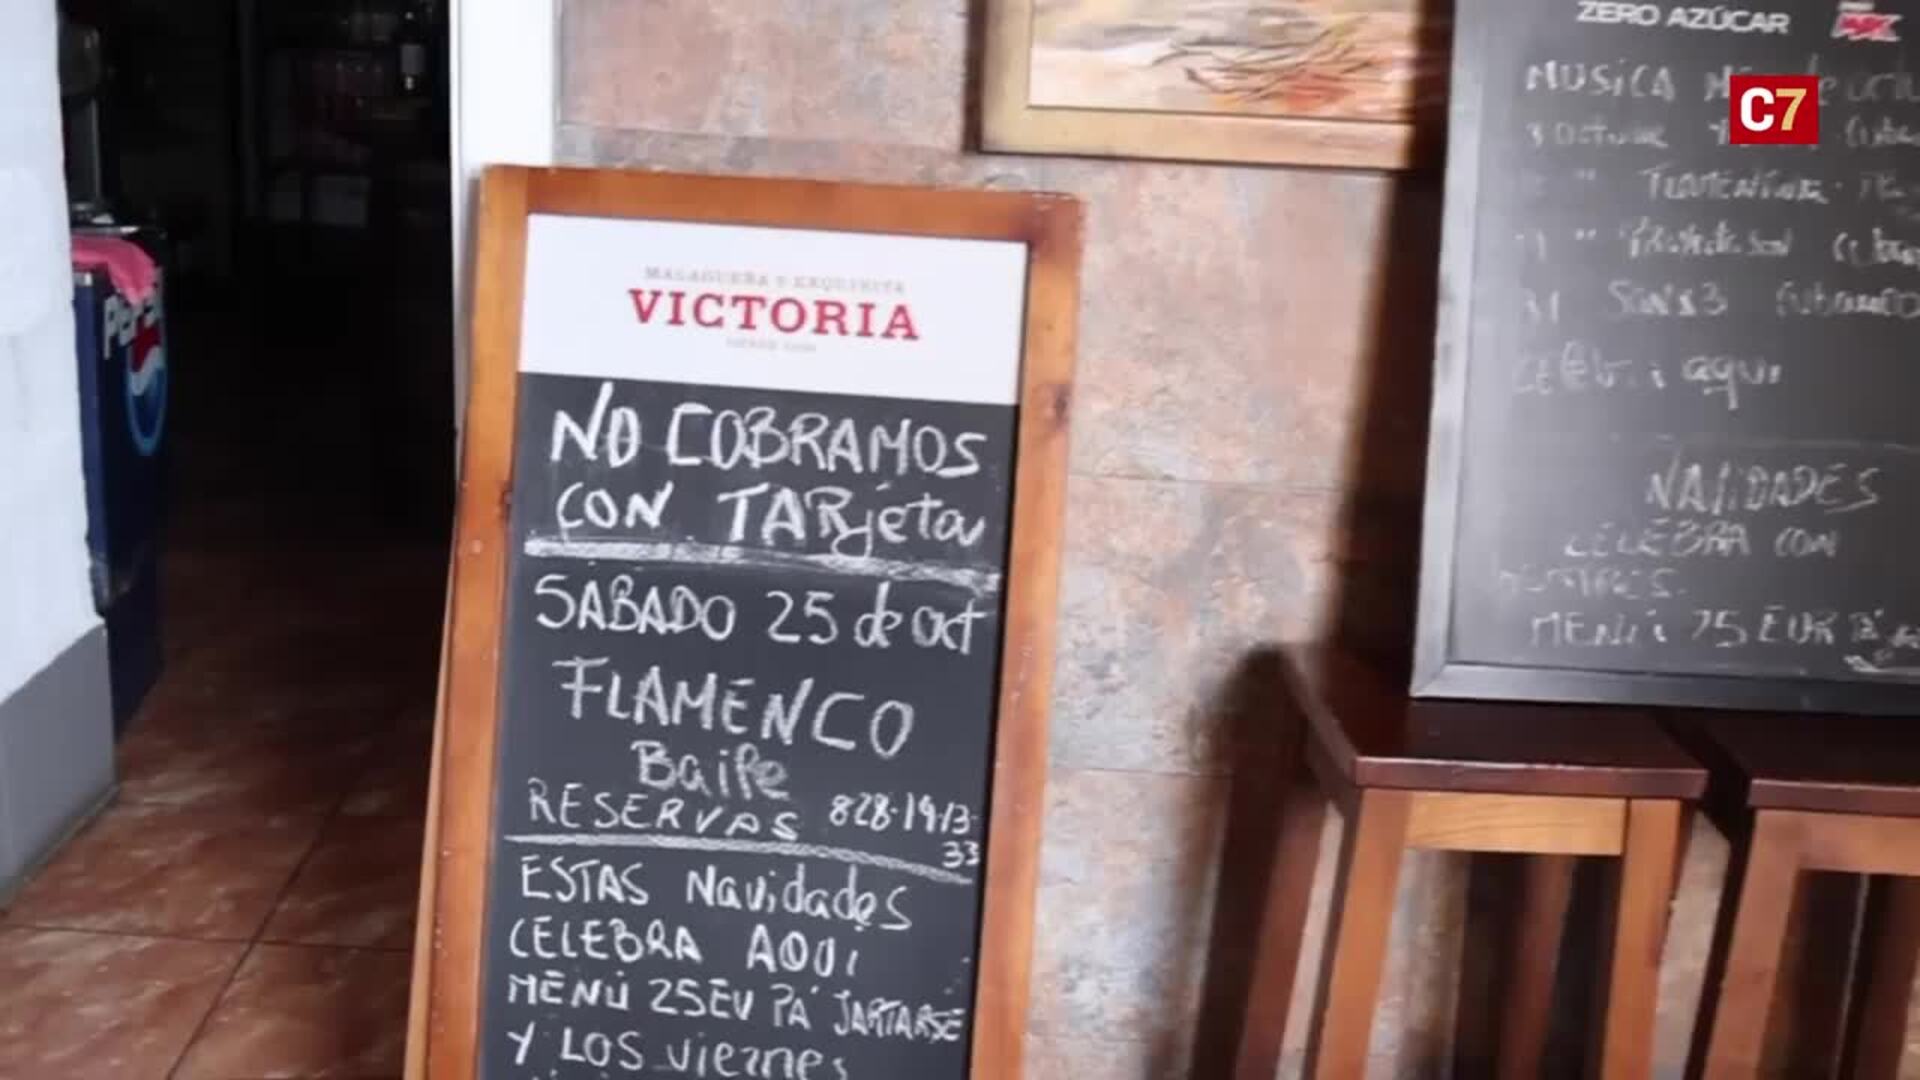 PEPSI
MALAGUEÑA Y EXQUISITA
VICTORIA
NO COBRAMOS
CON TARjeta
SABADO 25 de oct
FLAMENCO
Baile
RESERVAS 828·19·13·
33
ESTAS Navidades
CELEBRA AQUI
MENÚ 25 EU PA' JARTARSE
Y LOS viernes
ZERO AZÚCAR
MUSICA
C7
3 Octubre
31
aqui
NAVIDADES
CELEBRA CON
MENÚ 25 EUR PA'